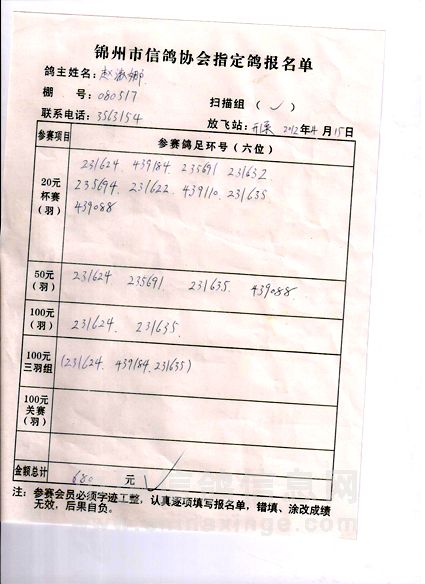 锦州市信鸽协会指定鸽报名单
鸽主姓名：赵淑娜
棚 号：080517
扫描组 （✓）
联系电话：3563154
放飞站：开原 2012年4月15日
参赛项目 参赛鸽足环号（六位）
20元杯赛（羽） 231624. 439184. 235691 231632.
235694. 231622. 439110. 231635
439088
50元（羽） 231624. 235691. 231635. 439088.
100元（羽） 231624. 231635.
100元三羽组 (231624. 439184. 231635)
100元关赛（羽）
金额总计 680 元
注：参赛会员必须字迹工整，认真逐项填写报名单，错填、涂改成绩
无效，后果自负。